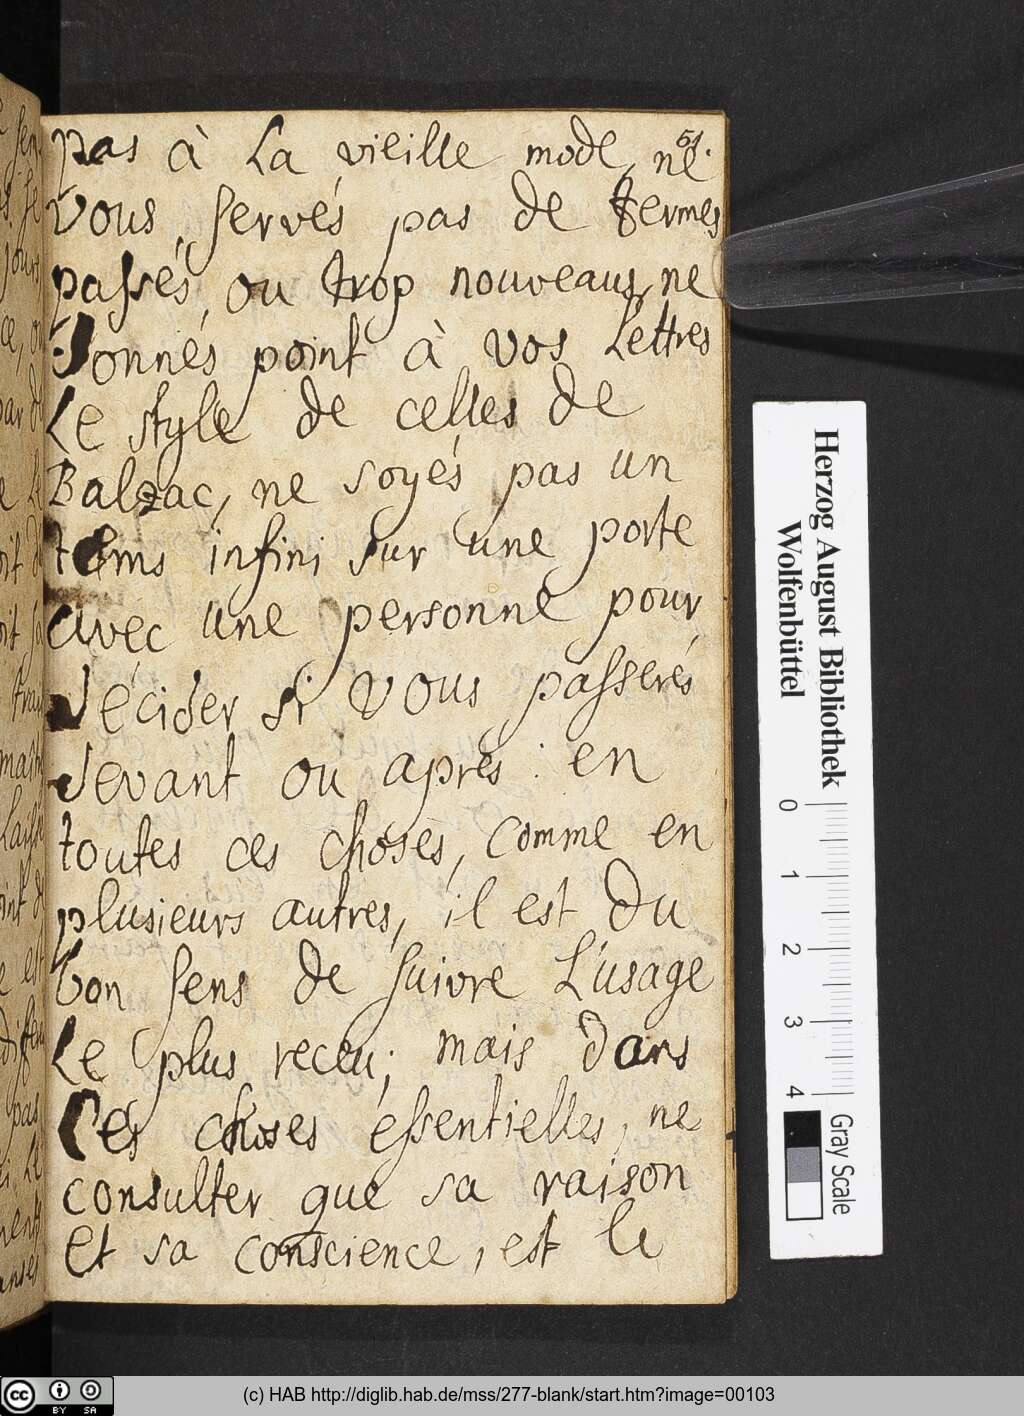 51.
pas à La vieille mode, ne
vous servés pas de termes
passés, ou trop nouveaus, ne
donnés point à vos Lettres
Le style de celles de
Balzac, ne soyés pas un
tems infini sur une porte
avec une personne pour
décider si vous passerés
devant ou aprés : en
toutes ces choses, comme en
plusieurs autres, il est du
bon sens de suivre L'usage
Le plus receu; mais dans
les choses essentielles, ne
consulter que sa raison
et sa conscience, est le
Herzog August Bibliothek
Wolfenbüttel
0 1 2 3 4
Gray Scale
cc BY SA
(c) HAB http://diglib.hab.de/mss/277-blank/start.htm?image=00103